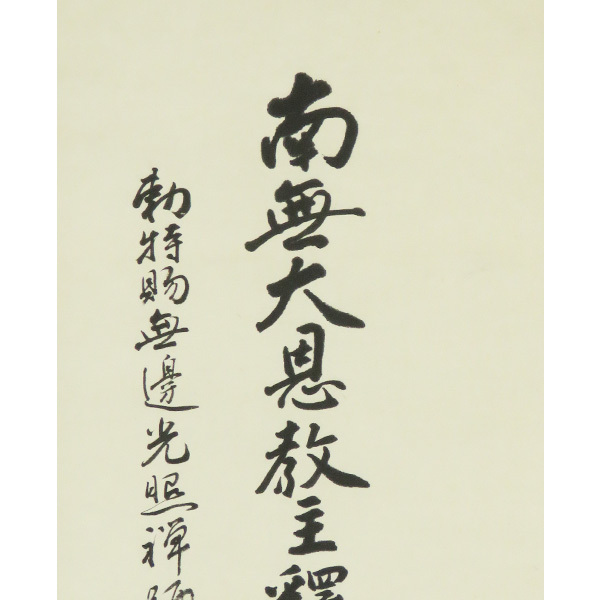 南無大恩教主釋
勅特賜無邊光照禅師